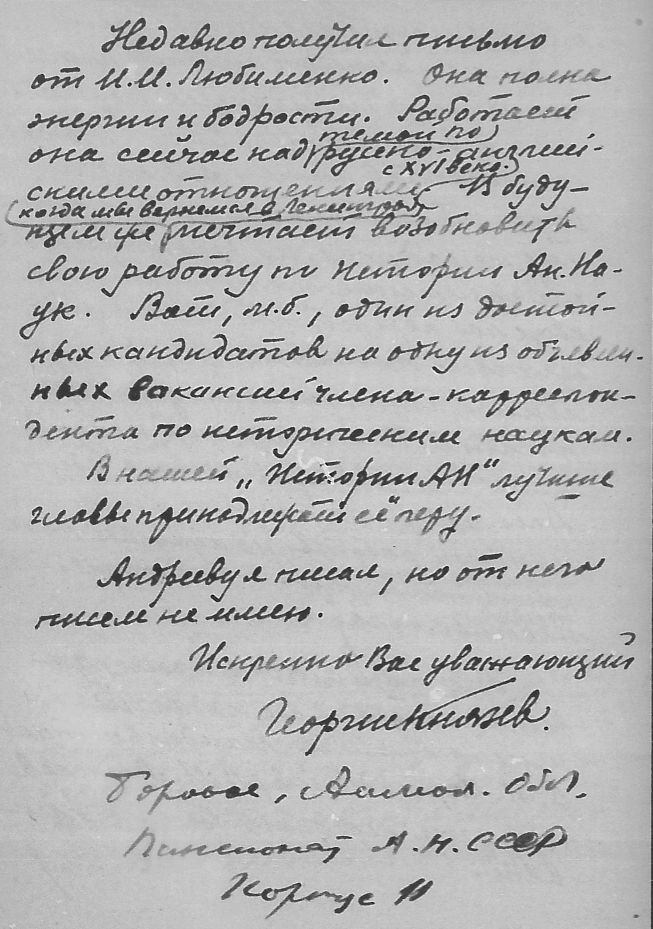 Недавно получил письмо
от И.И. Любименко. Она полна
энергии и бодрости. Работает
она сейчас над темой по русско-англий-
ским отношениям с XVI века. В буду-
когда мы вернемся в Ленинград
щем же мечтает возобновить
свою работу по истории Ак. На-
ук. Вот, м.б., один из достой-
ных кандидатов на одну из объявлен-
ных вакансий члена-корреспон-
дента по историческим наукам.
В нашей „Истории АН" лучшие
главы принадлежат её перу.
Андрееву я писал, но от него
писем не имею.
Искренно Вас уважающий
Георгий Князев.
Боровое, Акмол. Обл.
Пансионат А.Н. СССР
Корпус 11